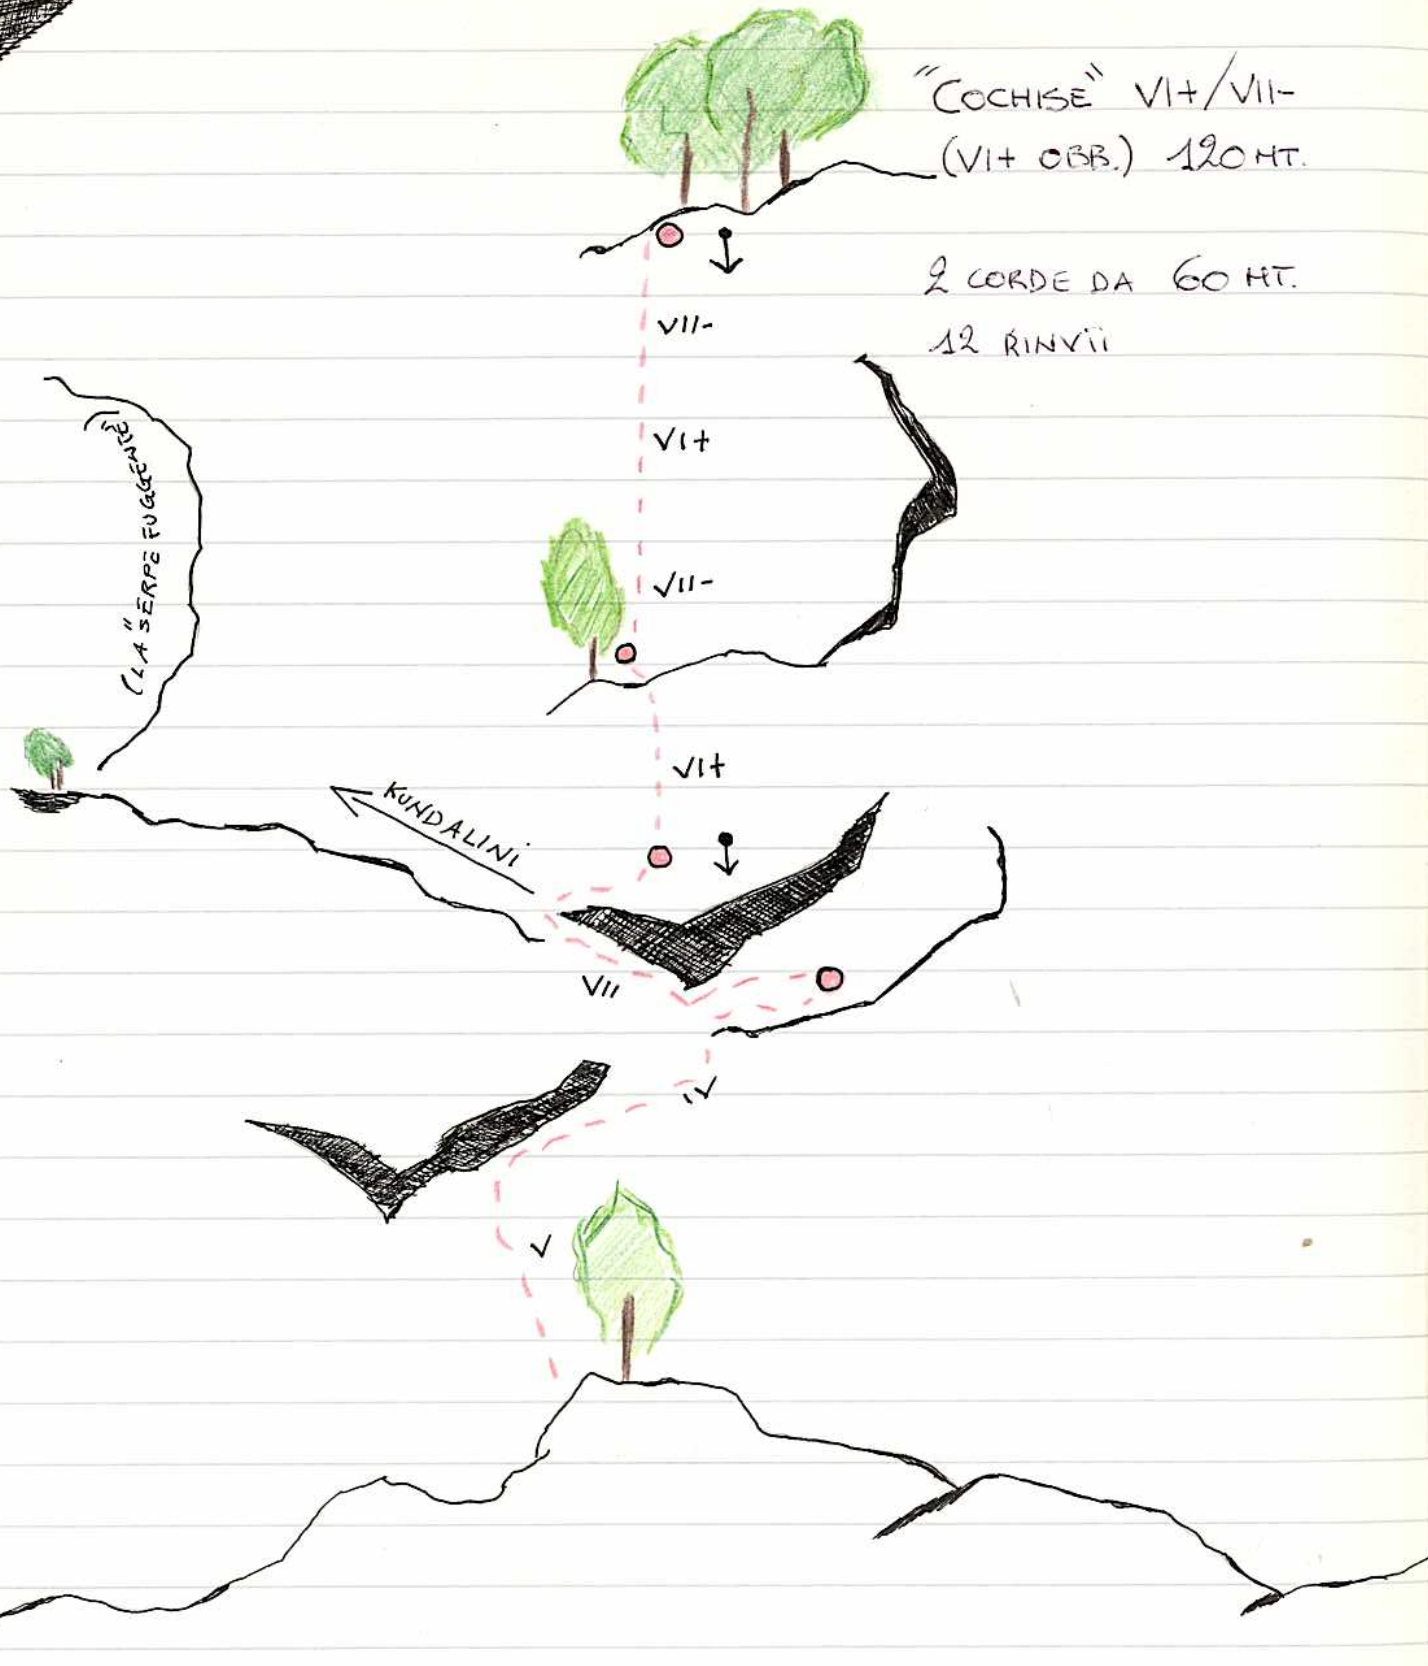 "COCHISE" VI+/VII-
(VI+ OBB.) 120 MT.
2 CORDE DA 60 MT.
12 RINVII
VII-
VI+
(LA "SERPE FUGGENTE")
VII-
VI+
KUNDALINI
VII
IV
V